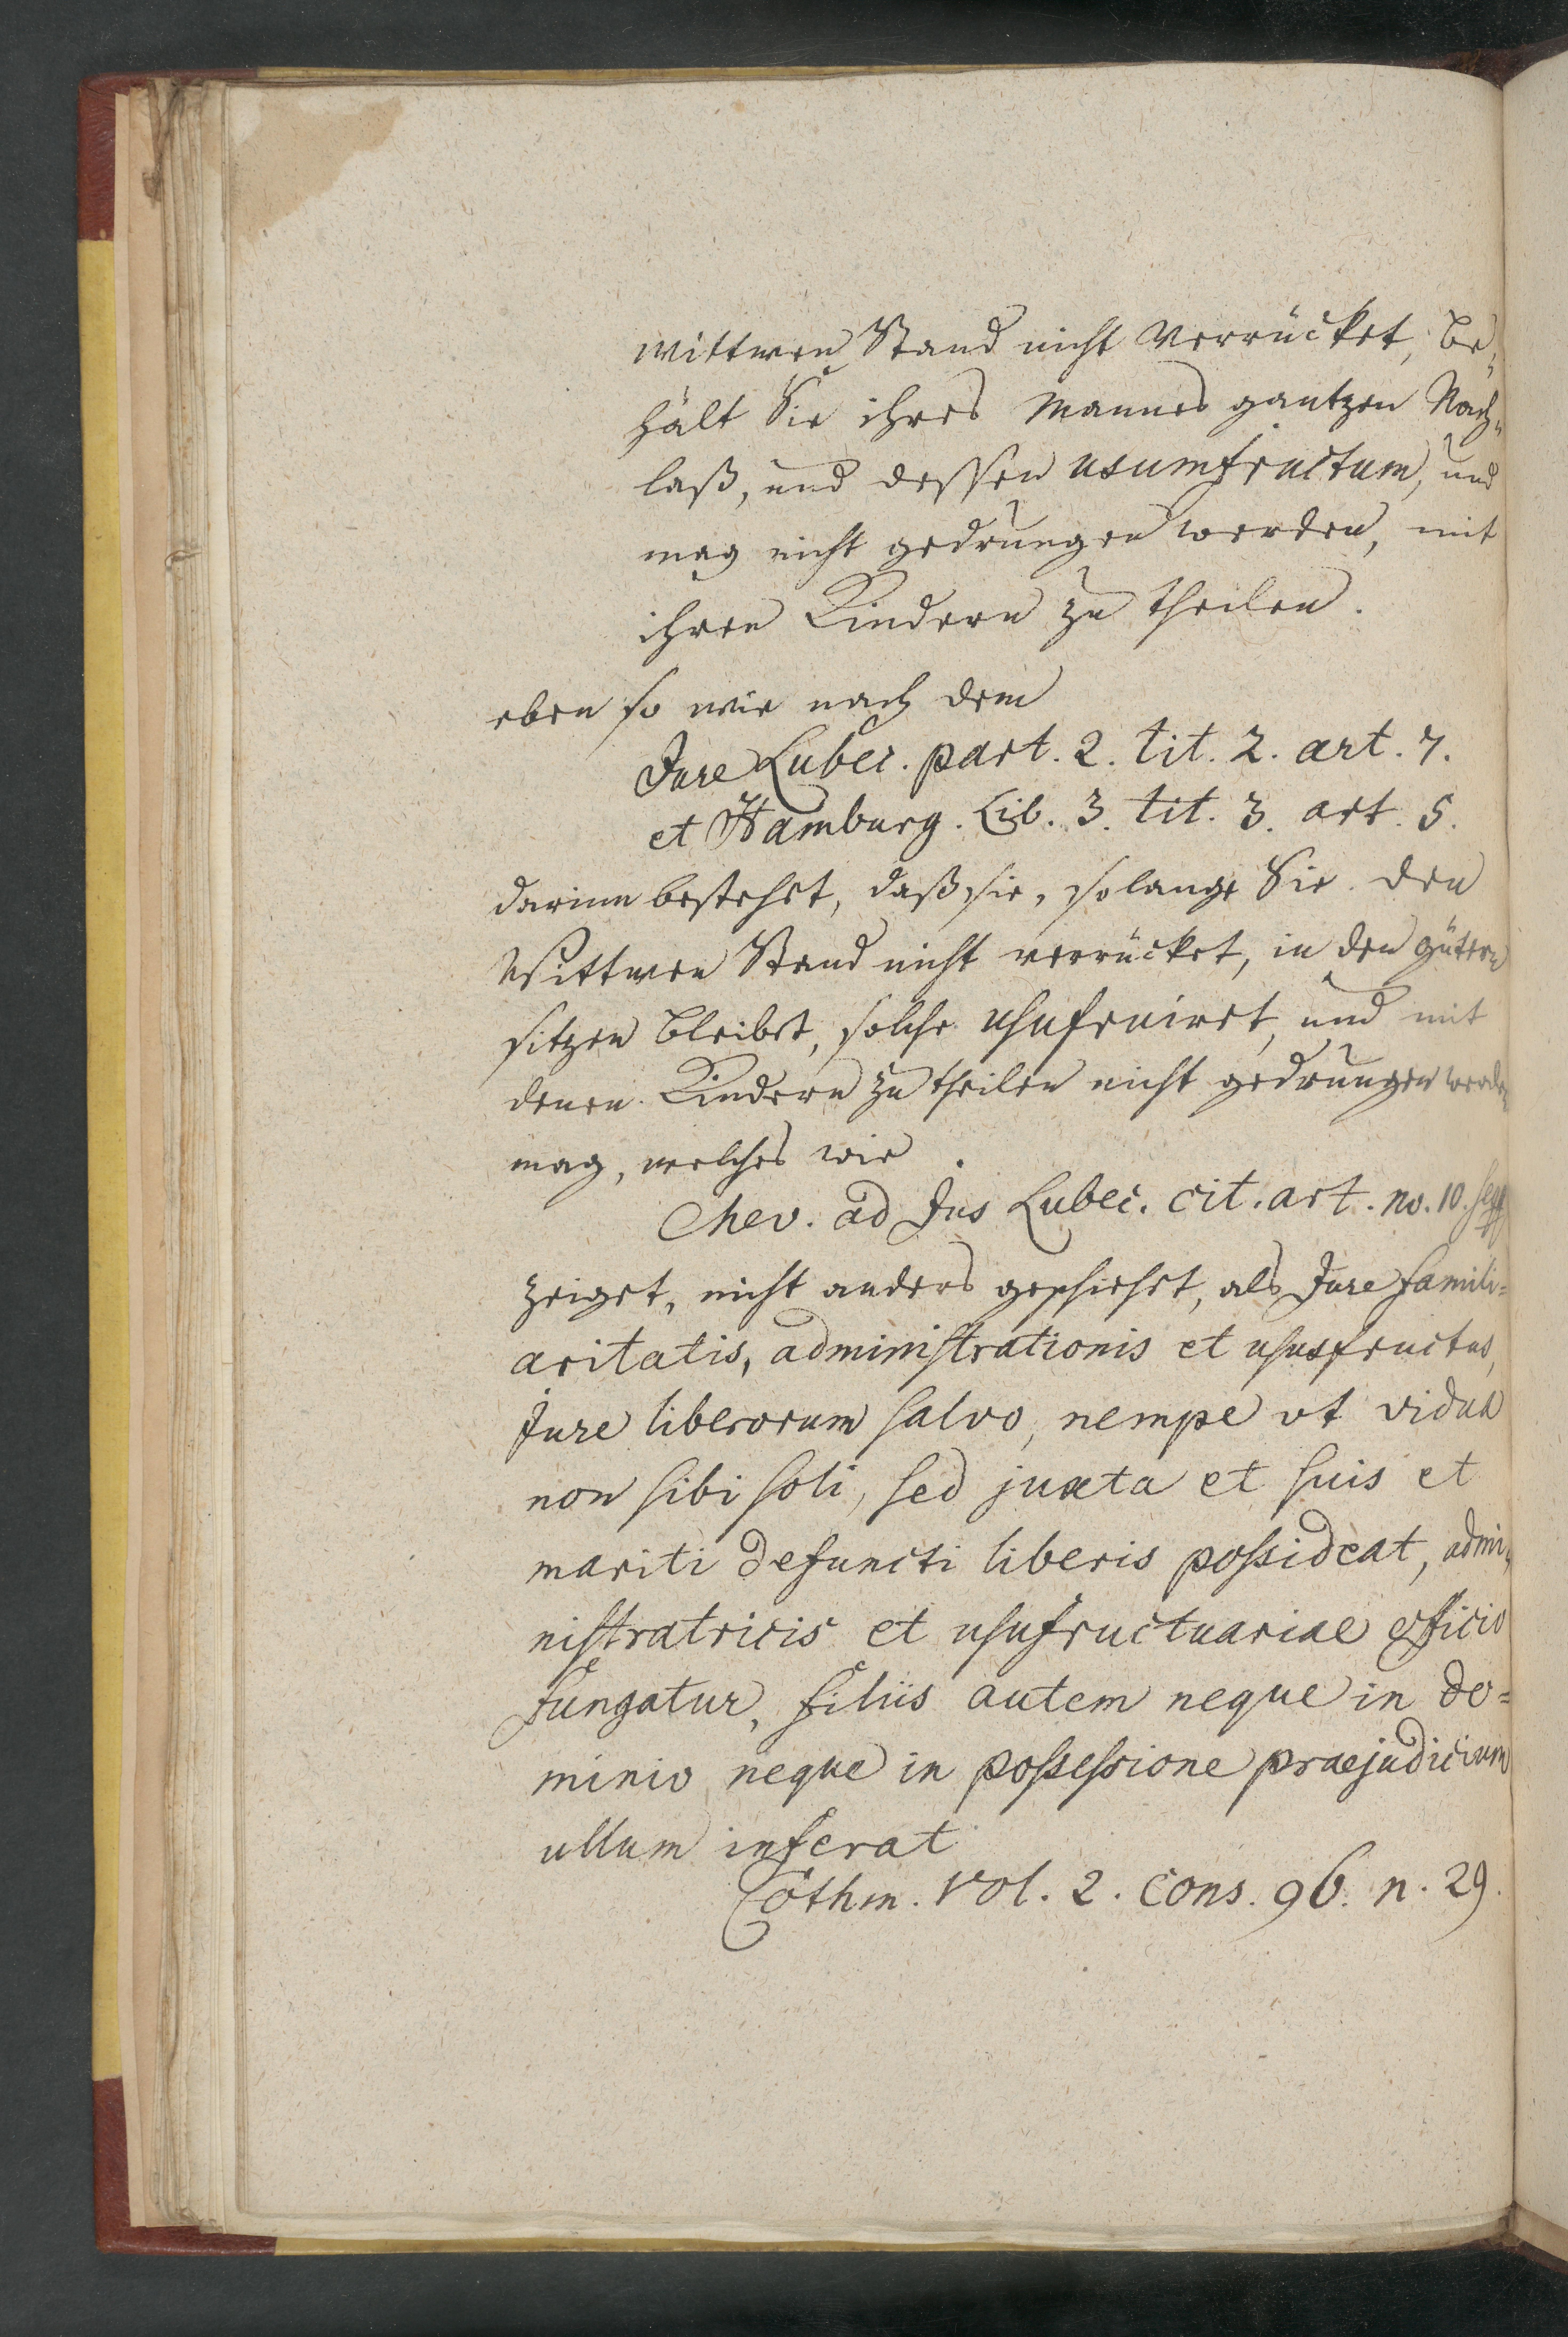 wittwen Stand nicht verrücket, be-
hält Sie ihres Mannes gantzen Nach-
laß, und dessen usumfructum, und
mag nicht gedrungen werden, mit
ihren Kindern zu theilen.
eben so wie nach dem
Jure Lubec. part. 2. tit. 2. art. 7.
et Hamburg. Lib. 3. tit. 3. art. 5.
darinn bestehet, daß sie, solange Sie den
Wittwen Stand nicht verrücket, in den gütern
sitzen bleibet, solche usufruiret, und mit
denen Kindern zu theilen nicht gedrungen werden
mag, welches wie
Mev. ad Jus Lubec. cit. art. no. 10. seqq
zeiget, nicht anders geschiehet, als Jure famili=
aritatis, administrationis et ususfructus,
Jure liberorum salvo, nempe vt vidua
non sibi soli, sed juxta et suis et
mariti defuncti liberis possideat, admi-
nistratricis et usufructuariae officio
fungatur, filiis autem neque in do=
minio neque in possessione praejudicium
ullum inferat
Cothm. Vol. 2. Cons. 96. n. 29.